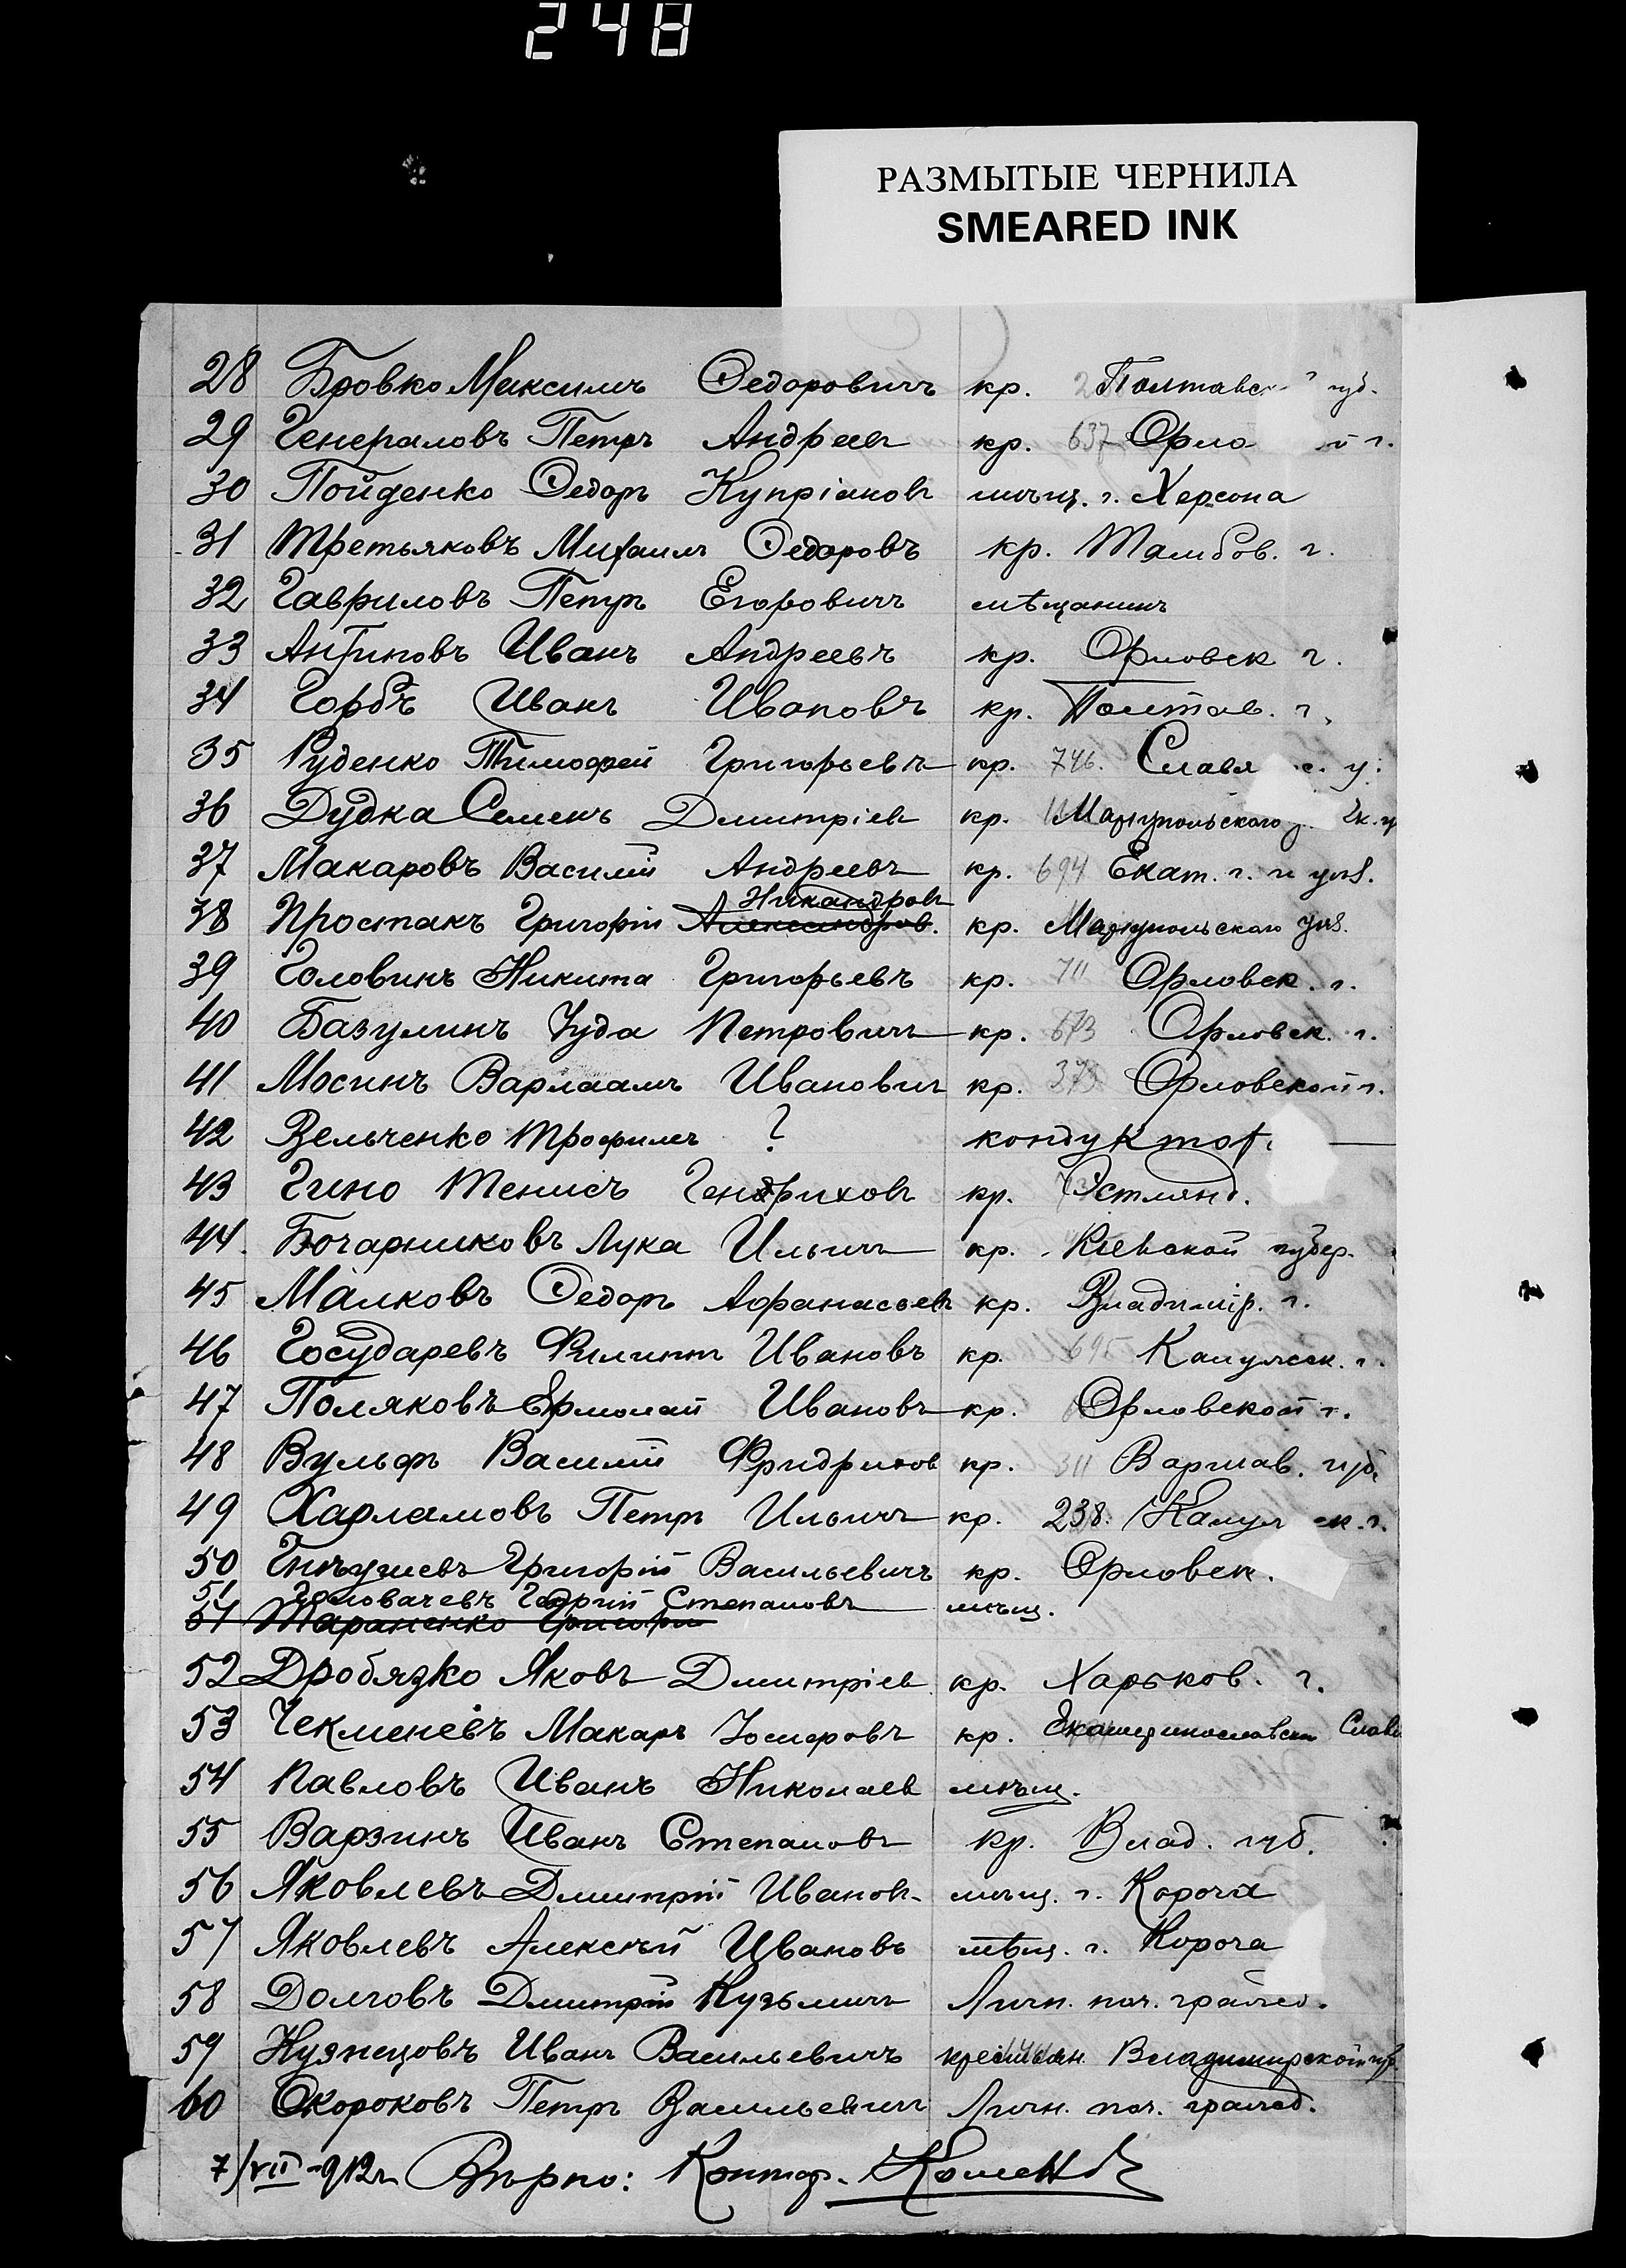 248
РАЗМЫТЫЕ ЧЕРНИЛА
SMEARED INK
28 Бровко Максимъ Федоровичъ кр. Полтавс губ.
29 Генераловъ Петръ Андреевъ кр. 637 Орло й г.
30 Пойденко Федоръ Купріановъ мѣщ. г. Херсона
31 Третьяковъ Михаилъ Федоровъ кр. Тамбов. г.
32 Гавриловъ Петръ Егоровичъ мѣщанинъ
33 Антиповъ Иванъ Андреевъ кр. Орловск г.
34 Горбъ Иванъ Ивановъ кр. Полтав. г.
35 Руденко Тимофей Григорьевъ кр. 746. Славя с. у.
36 Дудка Семенъ Дмитріев кр. Маріупольского у. Ек. г
37 Макаровъ Василій Андреевъ кр. 694 Екат. г. и уѣз.
Никандровъ
38 Простакъ Григорій Александров. кр. Маріупольскаго уѣз.
39 Головинъ Никита Григорьевъ кр. 711 Орловск. г.
40 Базулинъ Іуда Петровичъ кр. 673 Орловск. г.
41 Мосинъ Варлаамъ Ивановичъ кр. 373 Орловской г.
42 Зельченко Трофимъ ? кондуктор.
43 Гино Тенисъ Гендриховъ кр. Эстлянд.
44. Бочарниковъ Лука Ильичъ кр. Кіевской губер.
45 Малковъ Федоръ Афанасьев кр. Владимір. г.
46 Государевъ Филиппъ Ивановъ кр. 695 Калужск. г.
47 Поляковъ Ермолай Ивановъ кр. Орловской г.
48 Вульфъ Василій Фридрихов кр. 311 Варшав. губ.
49 Харламовъ Петръ Ильичъ кр. 238. Калуж ск. г.
50 Григорій Васильевичъ кр. Орловск.
51 Головачевъ Георгій Степановъ мѣщ.
51 Тараненко Григорій
52 Дробязко Яковъ Дмитріев кр. Харьков. г.
53 Чекменевъ Макаръ кр. Екатеринославск Славя
54 Павловъ Иванъ Николаев мѣщ.
55 Варзинъ Иванъ Степановъ кр. Влад. губ.
56 Яковлевъ Дмитрій Иванов. мѣщ. г. Короча
57 Яковлевъ Алексѣй Ивановъ мѣщ. г. Короча
58 Долговъ Дмитрій Кузьмичъ Личн. поч. гражд.
59 Кузнецовъ Иванъ Васильевичъ крестьян. Владимирской гу
60 Скороковъ Петръ Васильевичъ Личн. поч. гражд.
7/VII-912г. Вѣрно: Контор.